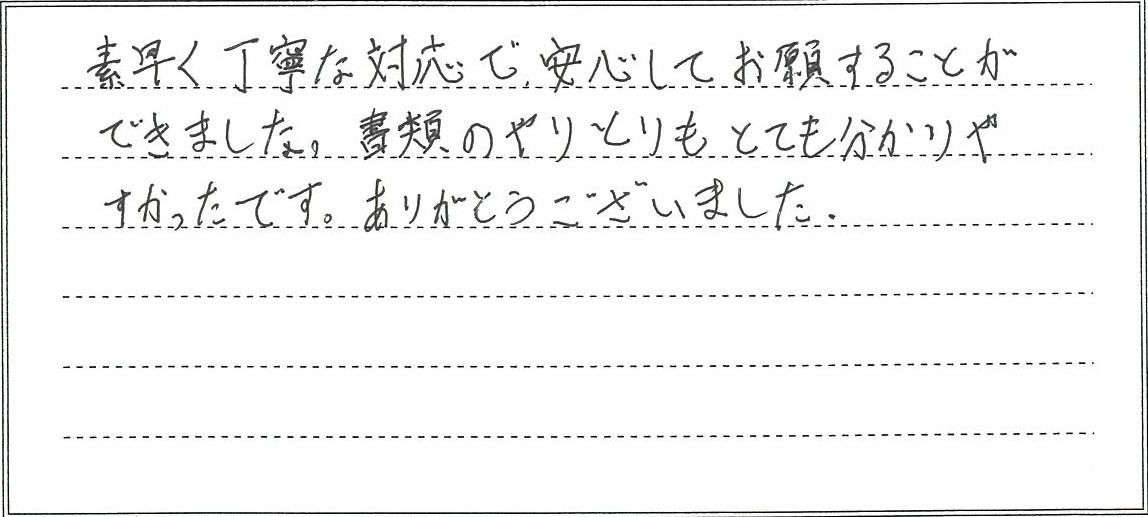 素早く丁寧な対応で、安心してお願することが
できました。書類のやりとりもとても分かりや
すかったです。ありがとうございました.